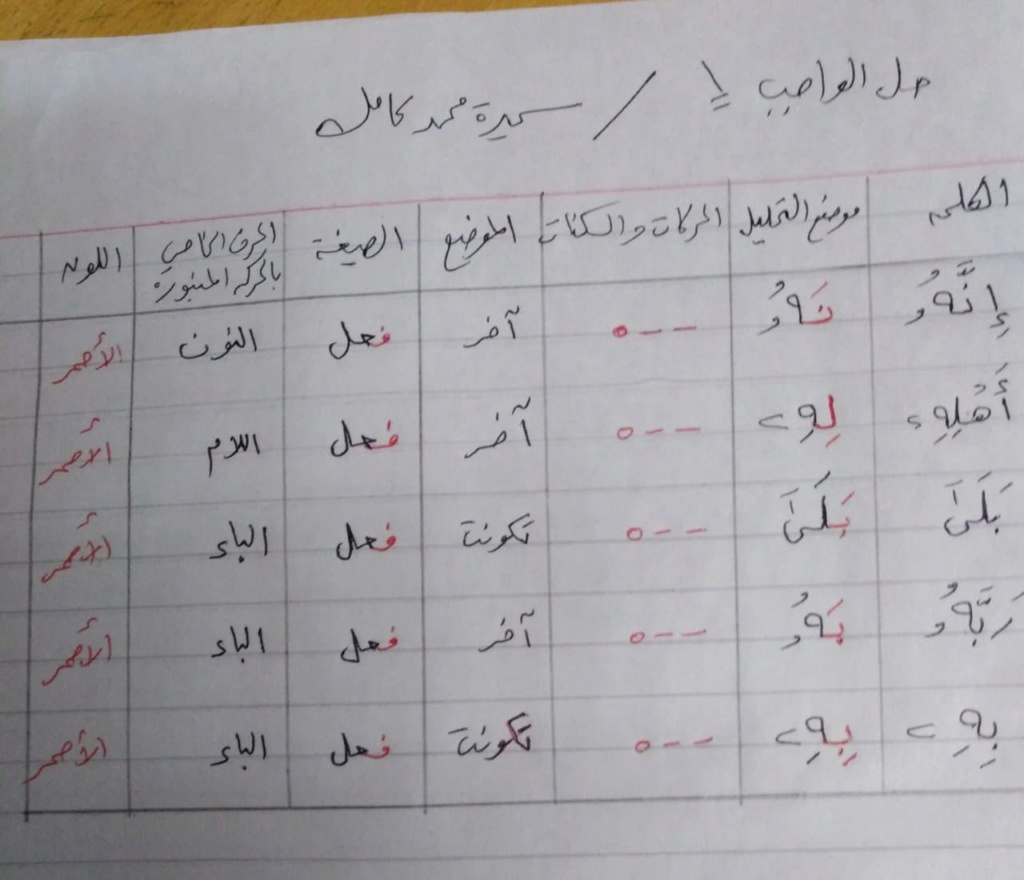 حل الواجب ١ / سميرة محمد كامل
الكلمة موضع التحليل الحركات والسكنات الموضع الصيغة الحرف الخاص بالحركة المنبورة اللون
إِنَّهُۥ نَهُۥ ---ه آخر فعل النون الأحمر
أَهْلِهِۦ لِهِۦ ---ه آخر فعل اللام الأحمر
بَلَىٰ بَلَىٰ ---ه تكونت فعل الباء الأحمر
رَبَّهُۥ بَهُۥ ---ه آخر فعل الباء الأحمر
بِهِۦ بِهِۦ ---ه تكونت فعل الباء الأحمر